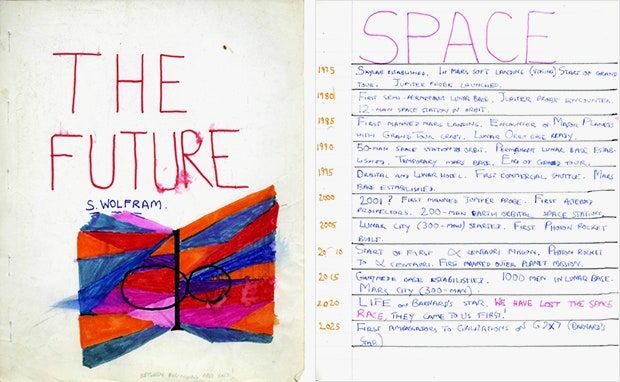 THE
FUTURE
S. WOLFRAM.
BETWEEN
SPACE
1975 SKYLAB ESTABLISHED. 1st MARS SOFT LANDING (VIKING) START OF GRAND
TOUR. JUPITER PROBE LAUNCHED.
1980 FIRST SEMI-PERMANENT LUNAR BASE. JUPITER PROBE ENCOUNTER.
12-MAN SPACE STATION IN ORBIT.
1985 FIRST MANNED MARS LANDING. ENCOUNTER OF MAJOR PLANETS
WITH GRAND TOUR CRAFT. LUNAR ORBIT BASE READY.
1990 50-MAN SPACE STATION IN ORBIT. PERMANENT LUNAR BASE ESTAB-
LISHED. TEMPORARY MARS BASE. END OF GRAND TOUR.
1995 ORBITAL AND LUNAR HOTEL. FIRST COMMERCIAL SHUTTLE. MARS
BASE ESTABLISHED.
2000 2001? FIRST MANNED JUPITER PROBE. FIRST ASTEROID
PROSPECTORS. 200-MAN EARTH ORBITAL SPACE STATION.
2005 LUNAR CITY (300-MAN) STARTED. FIRST PHOTON ROCKET
BUILT.
2010 START OF FIRST α CENTAURI MISSION. PHOTON ROCKET
TO α CENTAURI. FIRST MANNED OUTER PLANET MISSION.
2015 GANYMEDE BASE ESTABLISHED. 1000 MEN IN LUNAR BASE.
MARS CITY (300-MAN).
2020 LIFE ON BARNARD'S STAR. WE HAVE LOST THE SPACE
RACE, THEY CAME TO US FIRST!
2025 FIRST AMBASSADORS TO CIVILIZATIONS ON (BARNARD'S
STAR)